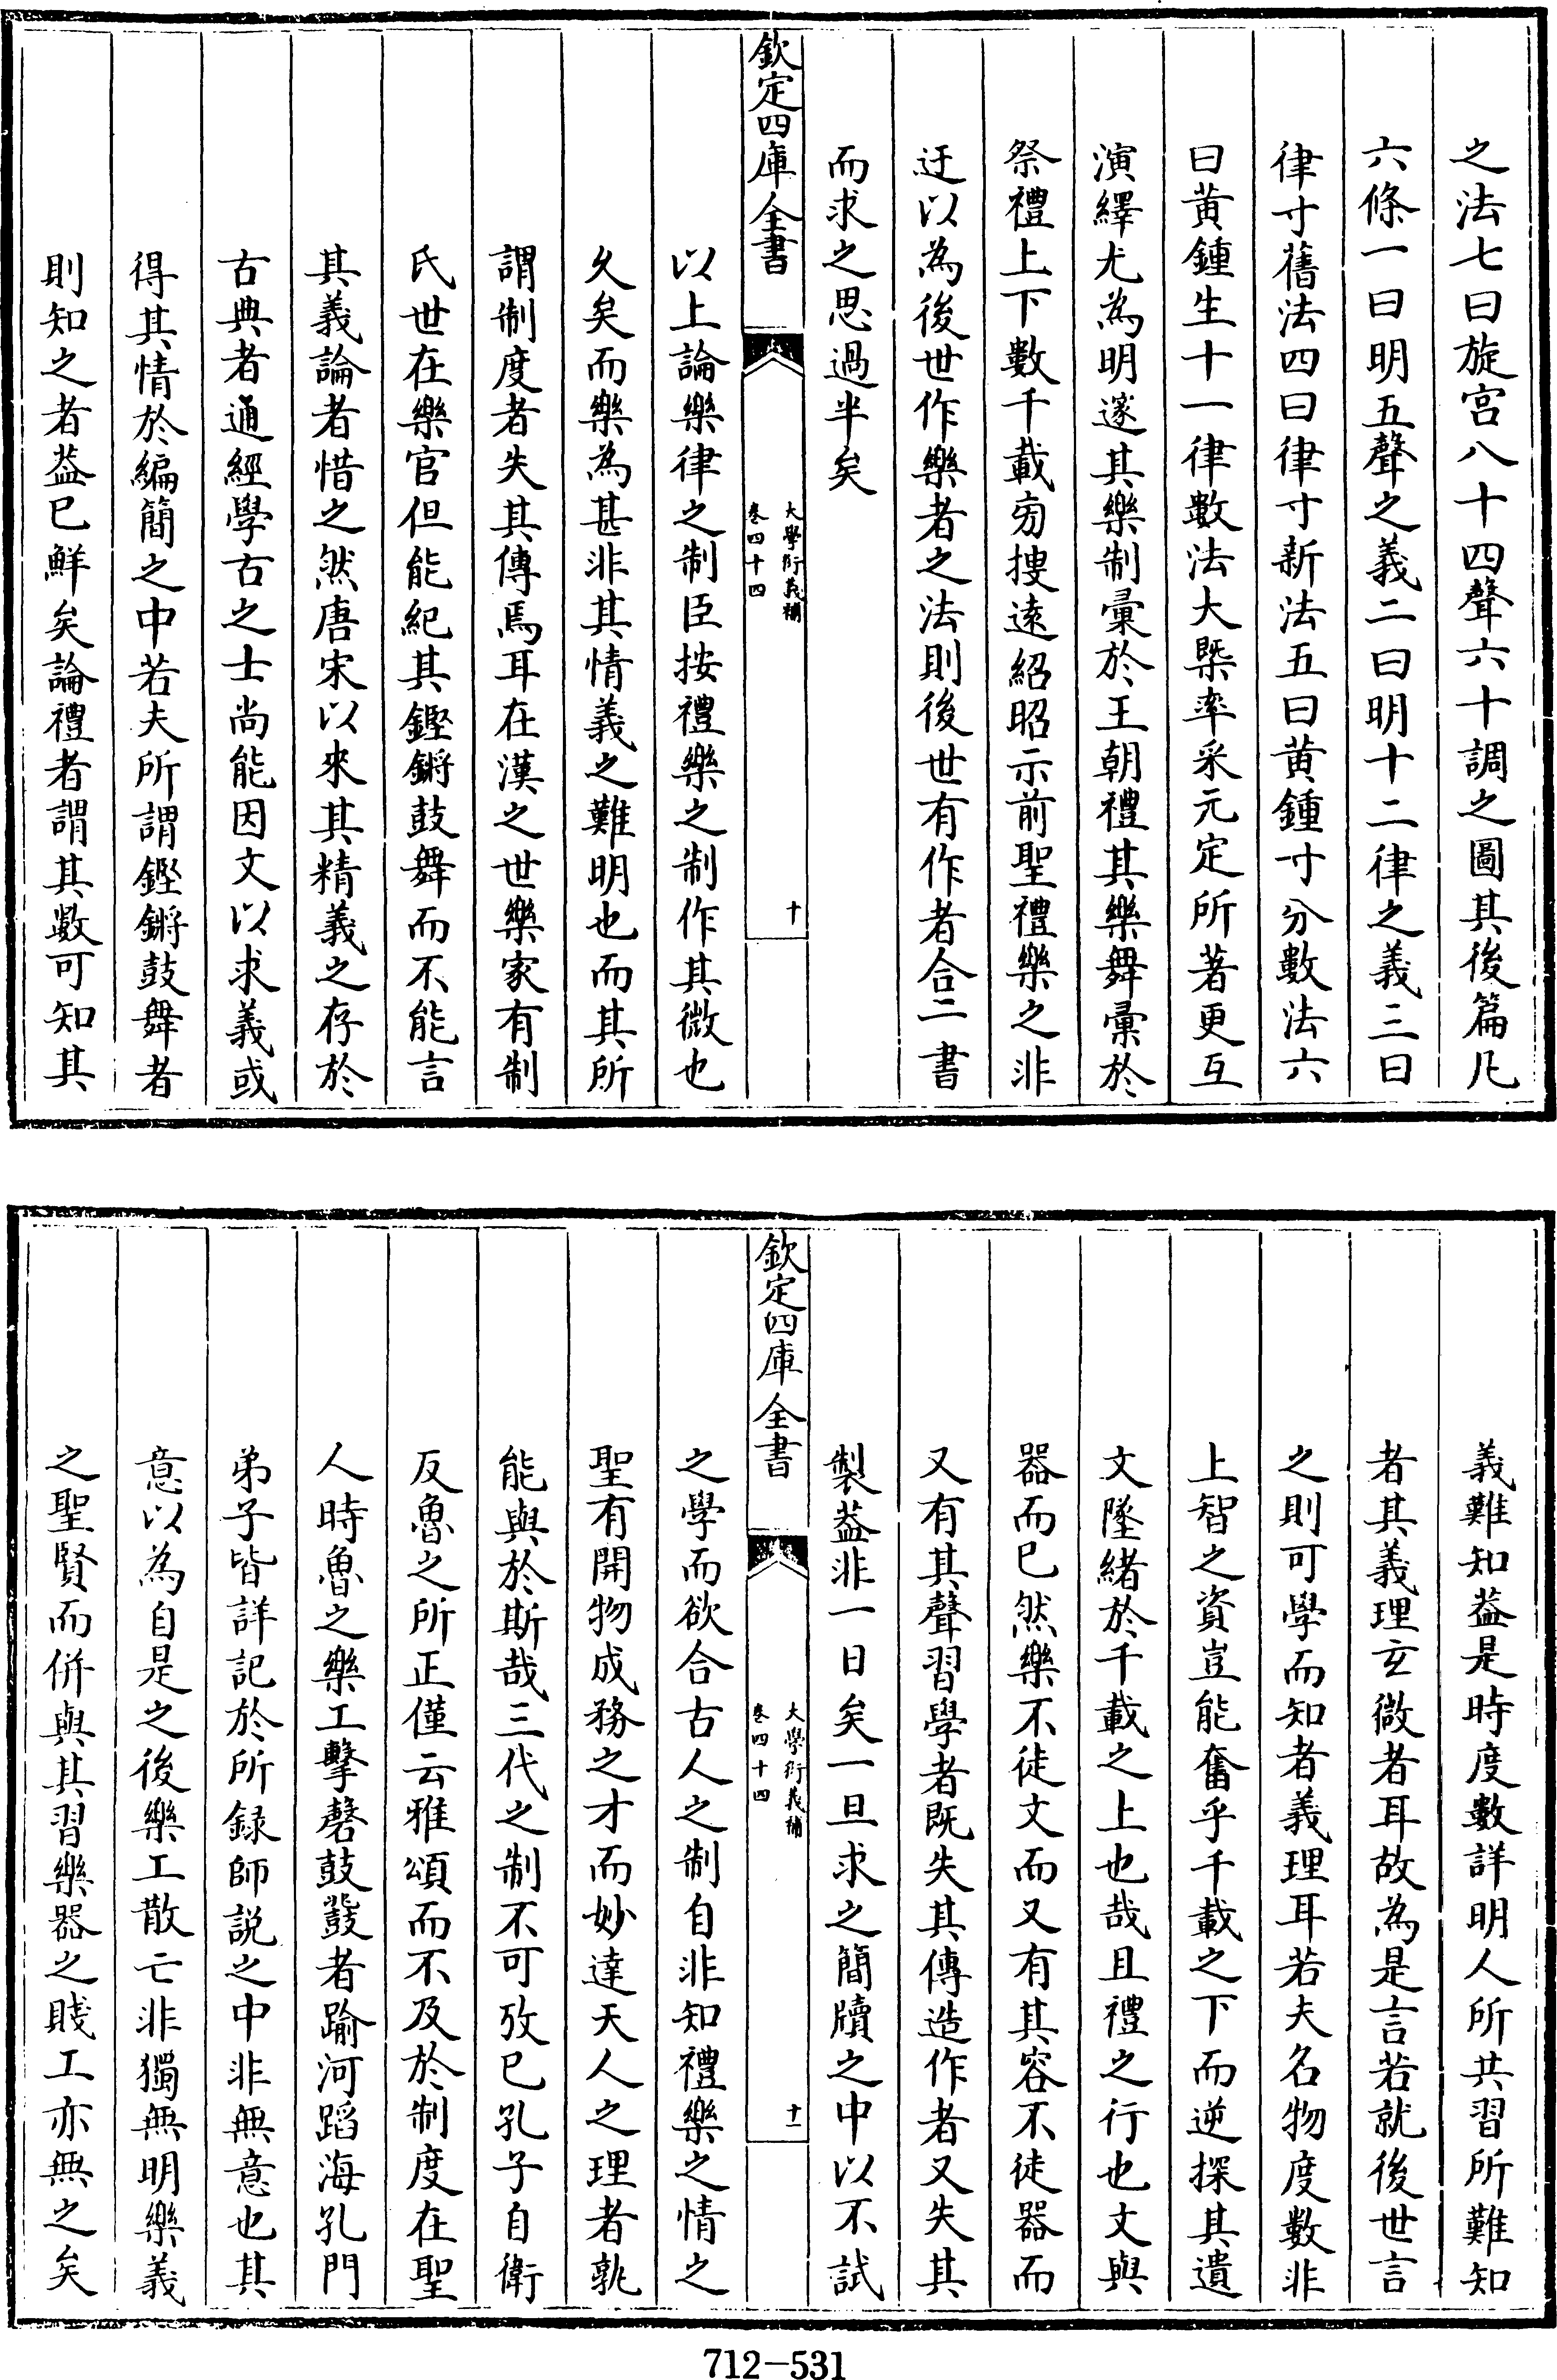 之法七曰旋宫八十四聲六十調之圖其後篇凡
六條一曰明五聲之義二曰明十二律之義三曰
律寸舊法四曰律寸新法五曰黄鍾寸分數法六
曰黄鍾生十一律數法大槩率采元定所著更互
演繹尤為明邃其樂制彚於王朝禮其樂舞彚於
祭禮上下數千載旁搜遠紹昭示前聖禮樂之非
迂以為後世作樂者之法則後世有作者合二書
而求之思過半矣
欽定四庫全書
大學衍義補
卷四十四
十
以上論樂律之制臣按禮樂之制作其微也
久矣而樂為甚非其情義之難明也而其所
謂制度者失其傳焉耳在漢之世樂家有制
氏世在樂官但能紀其鏗鏘鼓舞而不能言
其義論者惜之然唐宋以來其精義之存於
古典者通經學古之士尚能因文以求義或
得其情於編簡之中若夫所謂鏗鏘鼓舞者
則知之者葢已鮮矣論禮者謂其數可知其
義難知葢是時度數詳明人所共習所難知
者其義理玄微者耳故為是言若就後世言
之則可學而知者義理耳若夫名物度數非
上智之資豈能奮乎千載之下而逆探其遺
文墜緒於千載之上也哉且禮之行也文與
器而已然樂不徒文而又有其容不徒器而
又有其聲習學者既失其傳造作者又失其
製葢非一日矣一旦求之簡牘之中以不試
欽定四庫全書
大學衍義補
卷四十四
十一
之學而欲合古人之制自非知禮樂之情之
聖有開物成務之才而妙達天人之理者孰
能與於斯哉三代之制不可攷已孔子自衛
反魯之所正僅云雅頌而不及於制度在聖
人時魯之樂工擊磬鼓鼗者踰河蹈海孔門
弟子皆詳記於所録師説之中非無意也其
意以為自是之後樂工散亡非獨無明樂義
之聖賢而併與其習樂器之賤工亦無之矣
712-531